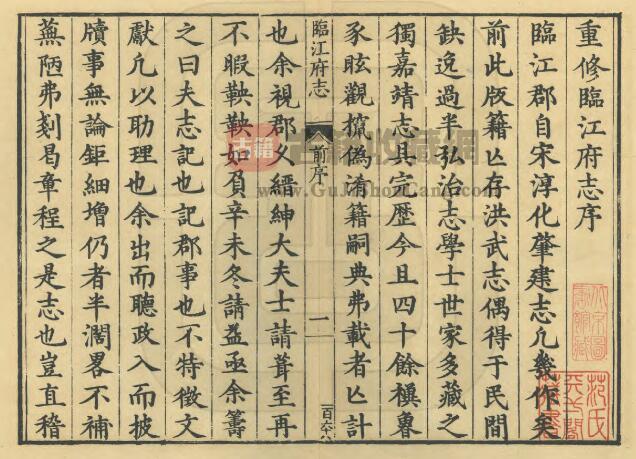 重修臨江府志序
臨江郡自宋淳化肇建志凢幾作矣
前此版籍亾存洪武志偶得于民間
缺逸過半弘治志學士世家多藏之
獨嘉靖志具完歷今且四十餘禩魯
豕眩觀撗偽淆籍嗣典弗載者亾計
臨江府志
前序
一
百六八
也余視郡乆縉紳大夫士請葺至再
不暇鞅鞅如負辛未冬請益亟余籌
之曰夫志記也記郡事也不特徵文
獻凢以助理也余出而聽政入而披
牘事無論鉅細增仍者半濶畧不補
蕪陋弗剗曷章程之是志也豈直稽
古籍收藏網
www.GuJiShouCang.com
范氏
天一閣
藏書